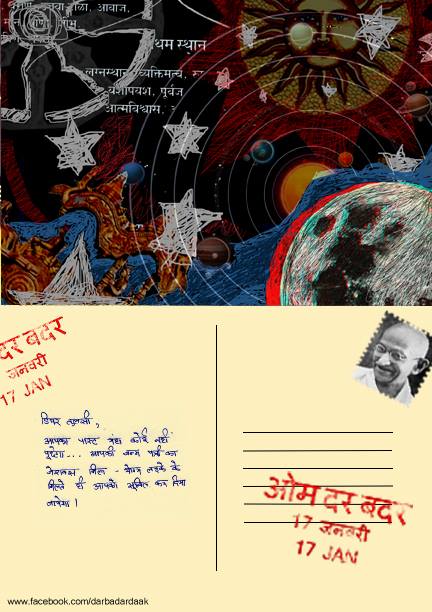 आवाज,
थम स्थान
लग्नस्थान, व्यक्तिमत्व,
यशोपयश, पूर्वज
आत्मविश्वास,
दर बदर
जनवरी
17 JAN
डियर तुलसी,
आपका पास्ट अब कोई नहीं
पूछेगा... आपकी जन्म पत्री का
लड़के के
मिलते ही आपको सूचित कर दिया
जायेगा !
ओम दर बदर
17 जनवरी
17 JAN
www.facebook.com/darbadardaak